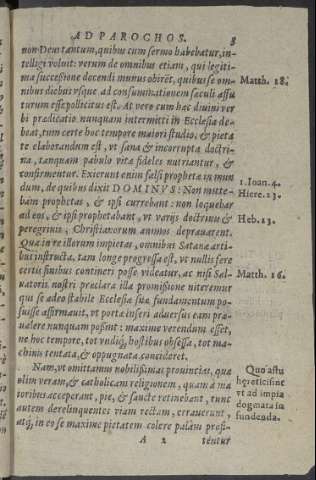 AD PAROCHOS. 3
non Deus tantum, quibus cum sermo habebatur, in-
telligi voluit: verum de omnibus etiam, qui legiti-
ma successione docendi munus obirēt, quibus se om-
nibus diebus vsque ad consummationem sæculi affu
turum esse pollicitus est. At vero cum hæc diuini ver
bi prædicatio nunquam intermitti in Ecclesia de-
beat, tum certe hoc tempore maiori studio, & pieta
te elaborandum est, vt sana & incorrupta doctri-
na, tanquam pabulo vitæ fideles nutriantur, &
confirmentur. Exierunt enim falsi prophetæ in mun
dum, de quibus dixit DOMINVS: Non mitte-
bam prophetas, & ipsi currebant: non loquebar
ad eos, & ipsi prophetabant, vt varijs doctrinis &
peregrinis, Christianorum animos deprauarent.
Qua in re illorum impietas, omnibus Satanæ arti-
bus instructa, tam longe progressa est, vt nullis fere
certis finibus contineri posse videatur, ac nisi Sal-
uatoris nostri præclara illa promissione niteremur
qui se adeo stabile Ecclesiæ suæ fundamentum po-
suisse affirmauit, vt portæ inferi aduersus eam præ-
ualere nunquam possint: maxime verendum esset,
ne hoc tempore, tot vndiq, hostibus obsessa, tot ma-
chinis tentata, & oppugnata concideret.
Nam, vt omittamus nobilissimas prouincias, quæ
olim veram, & catholicam religionem, quam a ma
ioribus acceperant, pie, & sancte retinebant, nunc
autem derelinquentes viam rectam, errauerunt,
atq, in eo se maxime pietatem colere palam profi-
A 2 tentur
Matth. 28.
1. Ioan. 4.
Hiere. 23.
Heb. 13.
Matth. 16.
Quo astu
hæretici sine
vt ad impia
dogmata in
fundenda.